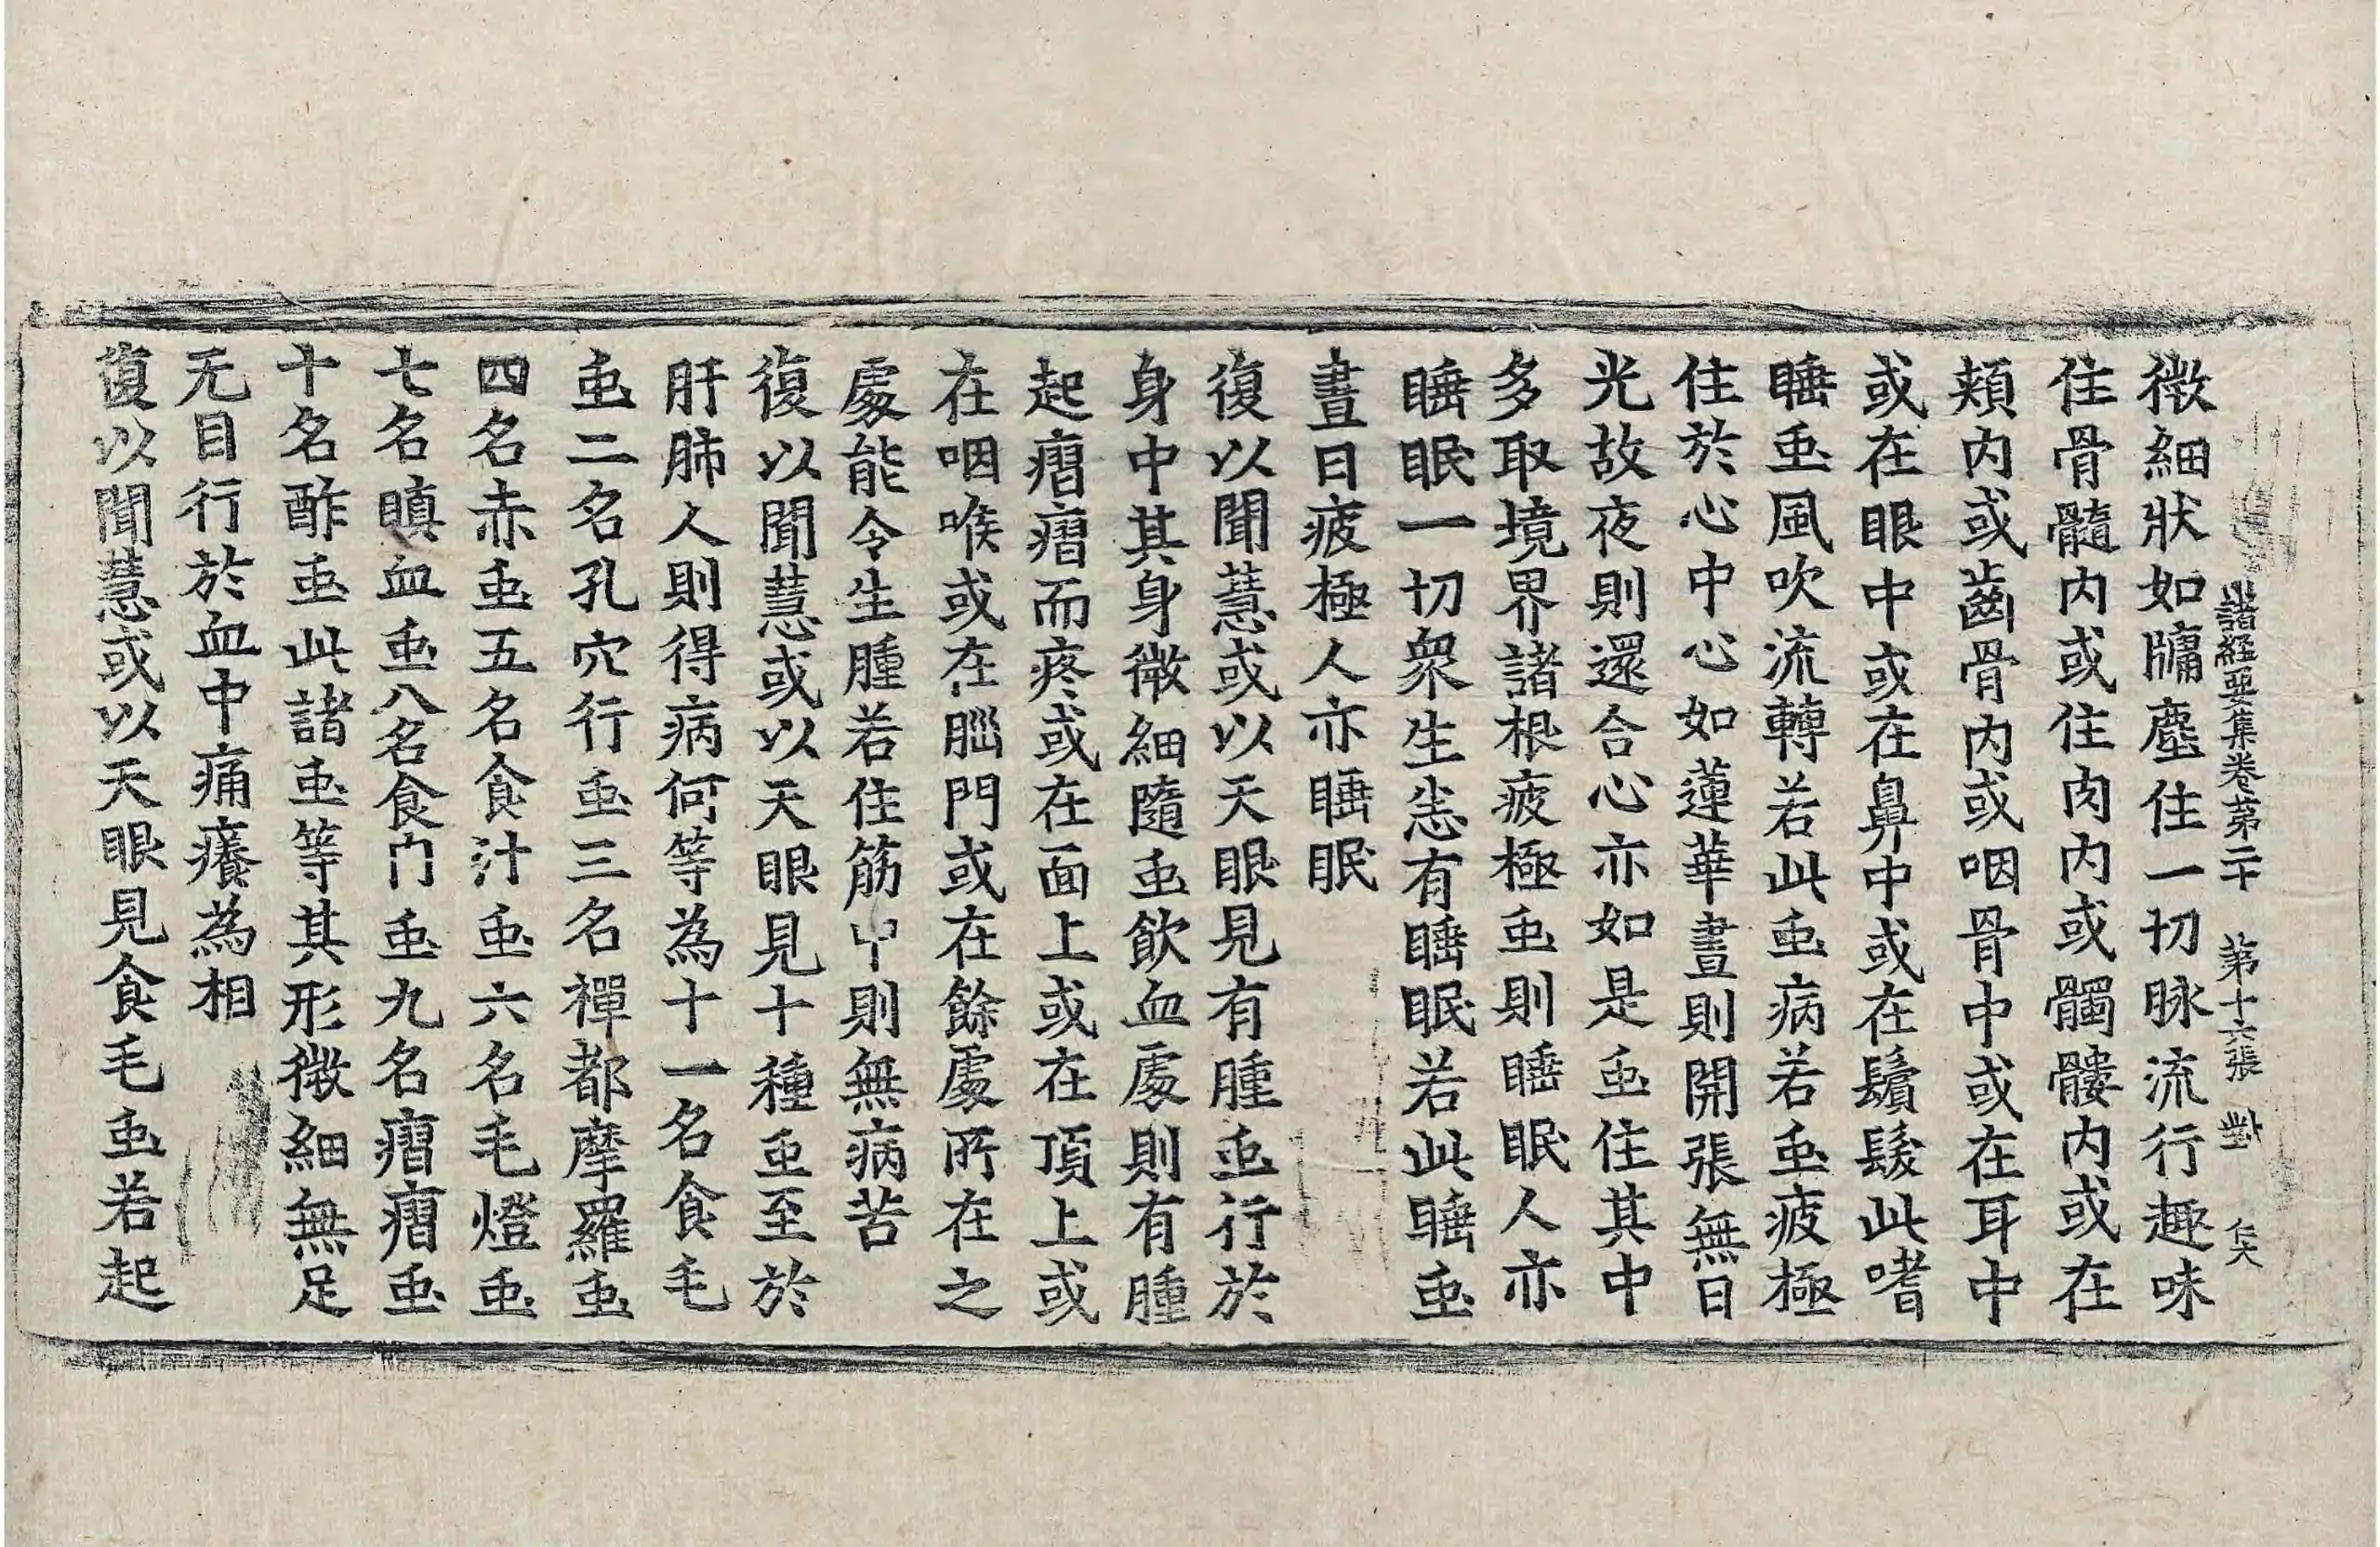 諸經要集卷第二十　第十六張　對　仄
微細狀如牗塵住一切脉流行趣味
住骨髓内或住肉内或髑髏内或在
頰内或齒骨内或咽骨中或在耳中
或在眼中或在鼻中或在鬚髮此嗜
睡䖝風吹流轉若此䖝病若䖝疲極
住於心中心如蓮華晝則開張無日
光故夜則還合心亦如是䖝住其中
多取境界諸根疲極䖝則睡眠人亦
睡眠一切衆生恙有睡眠若此睡䖝
晝日疲極人亦睡眠
復以聞慧或以天眼見有腫䖝行於
身中其身微細隨䖝飲血處則有腫
起瘤瘤而疼或在面上或在頂上或
在咽喉或在腦門或在餘處所在之
處能令生腫若住筋中則無病苦
復以聞慧或以天眼見十種䖝至於
肝肺人則得病何等為十一名食毛
䖝二名孔穴行䖝三名禪都摩羅䖝
四名赤䖝五名食汁䖝六名毛燈䖝
七名瞋血䖝八名食门䖝九名瘤瘤䖝
十名酢䖝此諸䖝等其形微細無足
无目行於血中痛癢為相
復以聞慧或以天眼見食毛䖝若起